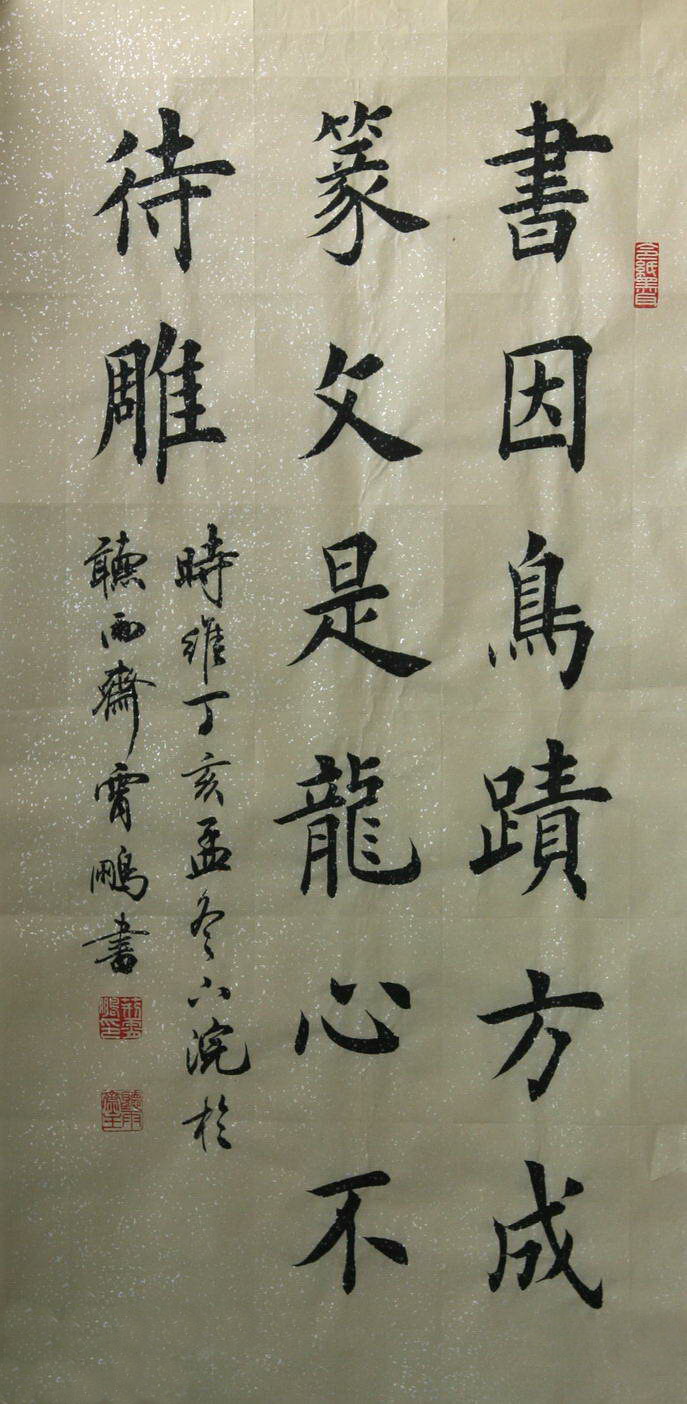 書因鳥蹟方成
篆文是龍心不
待雕
時維丁亥孟冬下浣於
聽雨齋霄鵬書